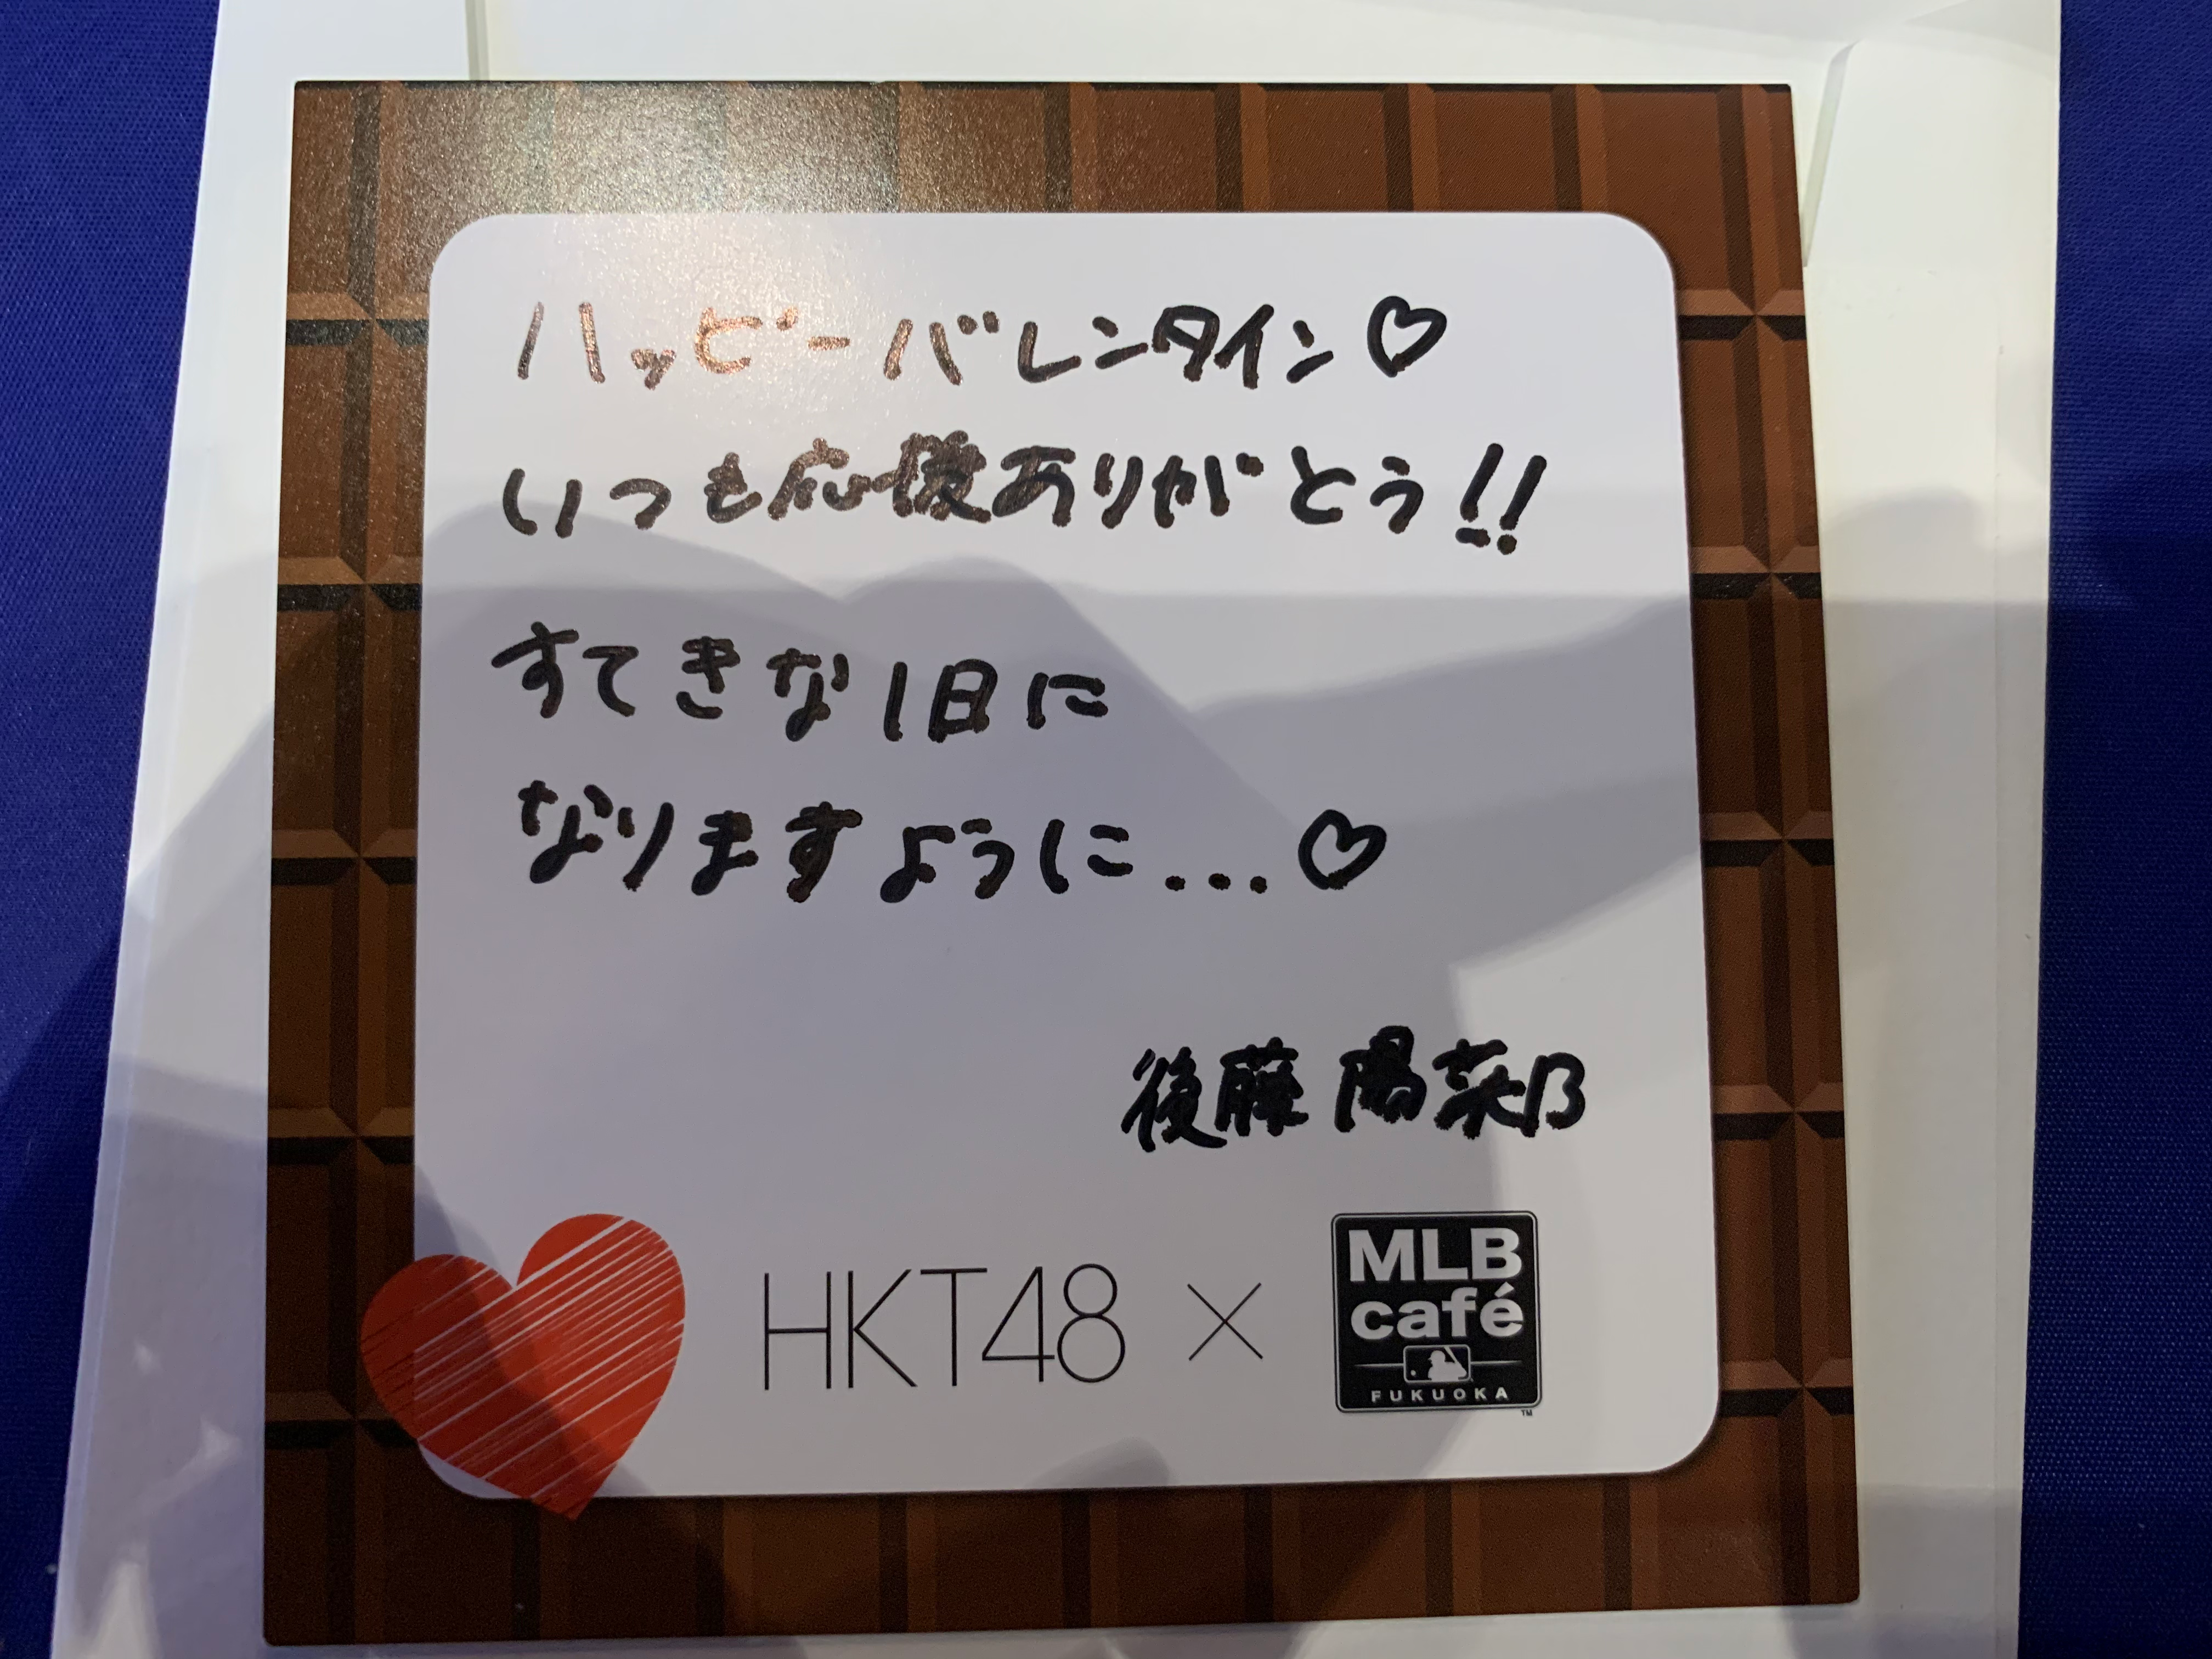 ハッピーバレンタイン♡
いつも応援ありがとう!!
すてきな1日に
なりますように...♡
後藤 陽菜乃
HKT48 × MLB café FUKUOKA TM